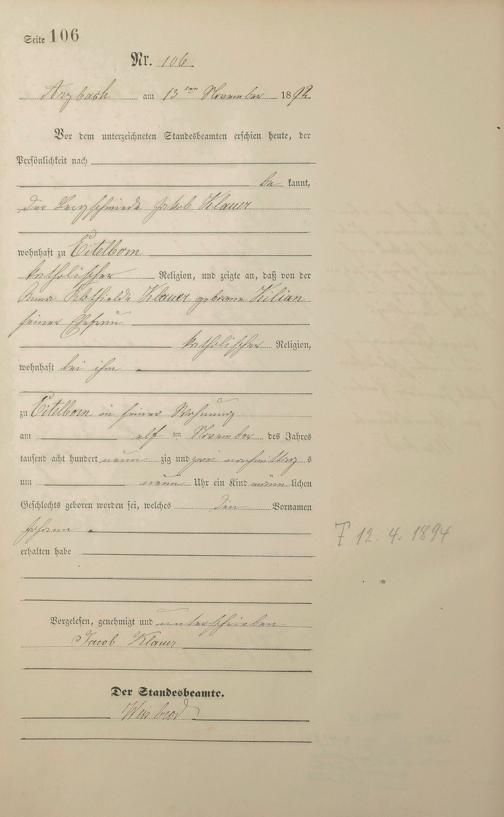 Seite 106
Nr. 106.
Arzbach am 13ten November 1892
Vor dem unterzeichneten Standesbeamten erschien heute, der
Persönlichkeit nach
be kannt,
der Bergschmiede Jakob Klauer
wohnhaft zu Eitelborn
katholischer Religion, und zeigte an, daß von der
Anna Mathilde Klauer geborene Kilian
seiner Ehefrau
katholischer Religion,
wohnhaft bei ihm
zu Eitelborn in seiner Wohnung
am elf ten November des Jahres
tausend acht hundert neun zig und zwei nachmittag s
um neun Uhr ein Kind männ lichen
Geschlechts geboren worden sei, welches den Vornamen
Johann
erhalten habe
† 12. 4. 1894
Vorgelesen, genehmigt und unterschrieben
Jacob Klauer
Der Standesbeamte.
Weisbrod